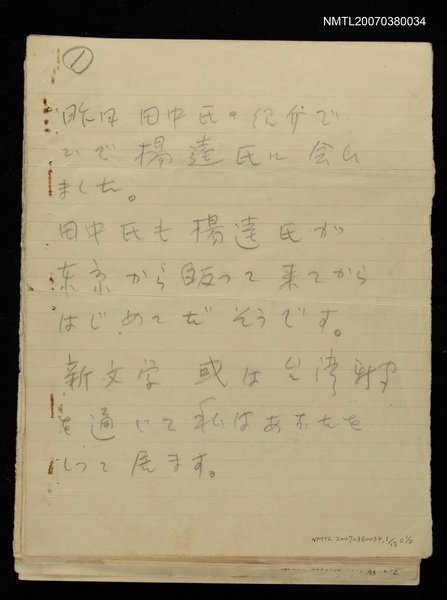 NMTL20070380034
①
昨日 田中氏の紹介で
こで 楊逵氏に会い
ました。
田中氏も楊逵氏が
东京から皈って来てから
はじめてだそうです。
新文学 或は台湾新
を通いて私はあなたを
しつて居ます。
NMTL20070380034,1/12 C1/2